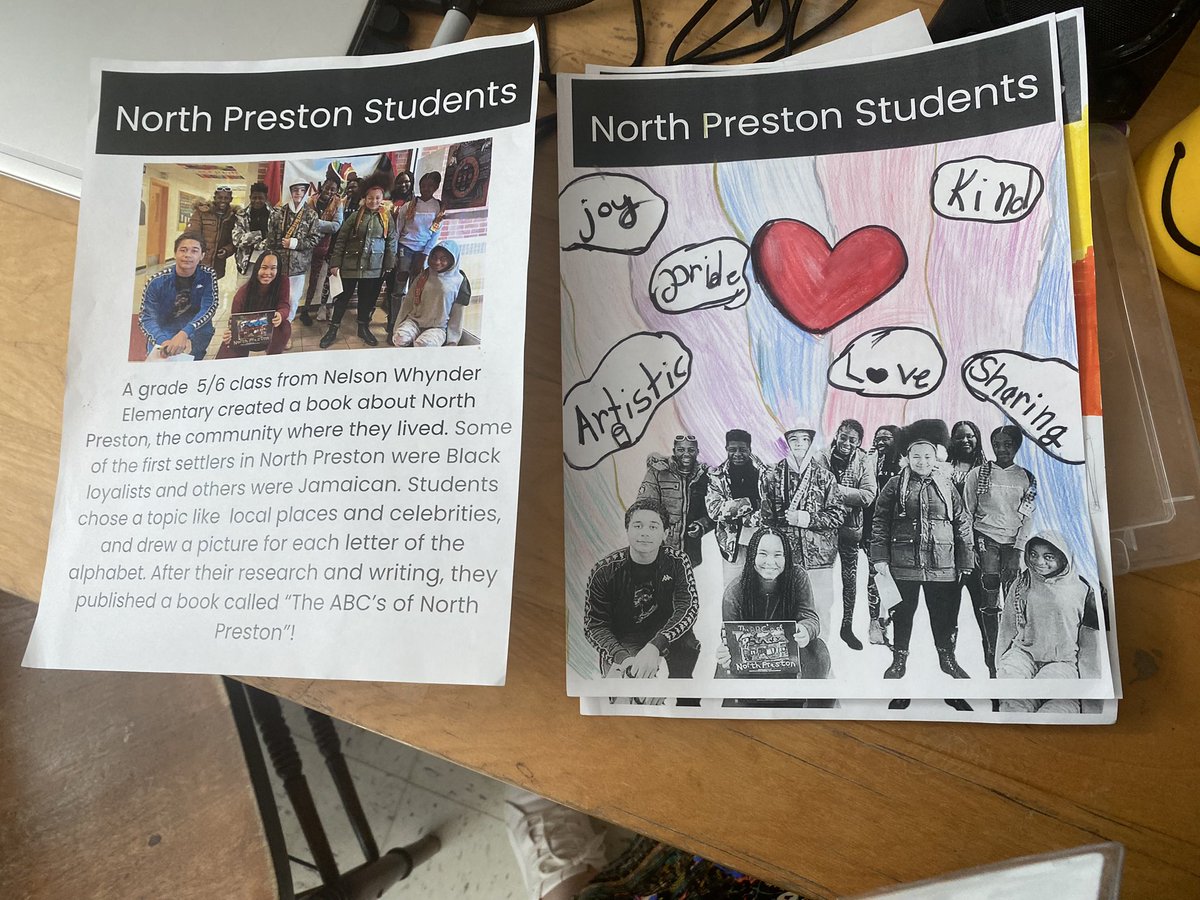 North Preston Students
A grade 5/6 class from Nelson Whynder
Elementary created a book about North
Preston, the community where they lived. Some
of the first settlers in North Preston were Black
loyalists and others were Jamaican. Students
chose a topic like local places and celebrities,
and drew a picture for each letter of the
alphabet. After their research and writing, they
published a book called “The ABC’s of North
Preston”!
North Preston
North Preston Students
joy
Kind
pride
Love
Artistic
Sharing
The ABC's of
North Preston
Kappa